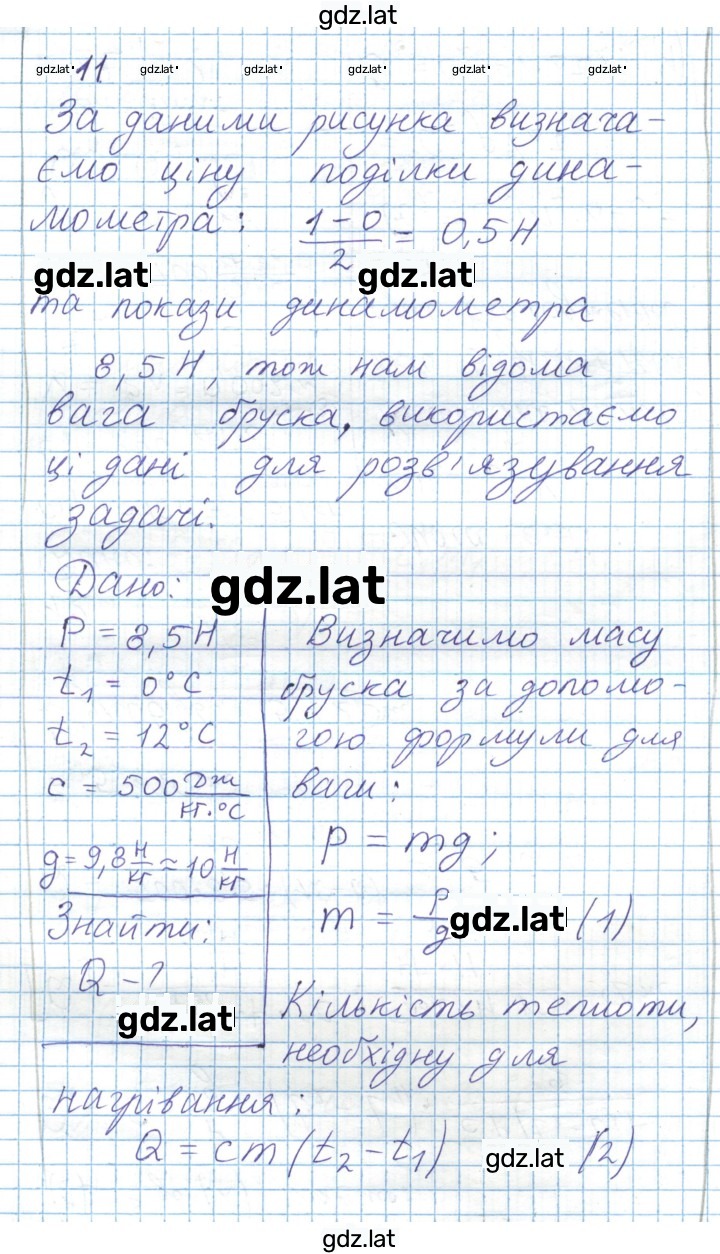 gdz.lat
gdz.lat 11 gdz.lat gdz.lat gdz.lat gdz.lat gdz.lat
За даними рисунка визнача-
ємо ціну поділки дина-
мометра: (1-0)/2 = 0,5 Н
gdz.lat gdz.lat
та покази динамометра
8,5 Н, тож нам відома
вага бруска, використаємо
ці дані для розв'язування
задачі.
Дано: gdz.lat
P = 8,5 Н
t₁ = 0°C
t₂ = 12°C
c = 500 Дж/кг·°C
g = 9,8 Н/кг ≈ 10 Н/кг
Знайти:
Q - ?
gdz.lat
Визначимо масу
бруска за допомо-
гою формули для
ваги:
P = mg;
m = P/g gdz.lat (1)
Кількість теплоти,
необхідну для
нагрівання:
Q = cm(t₂ - t₁) gdz.lat (2)
gdz.lat